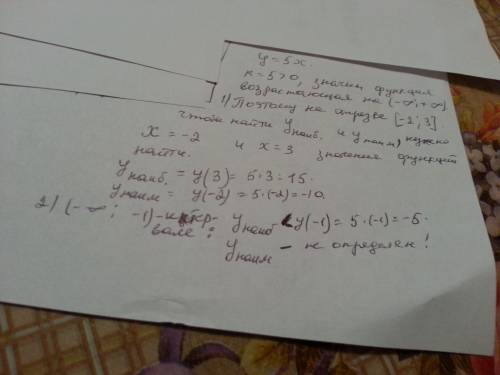 y = 5x.
k = 5>0, значит функция
возрастающая на (-∞; +∞)
1) Поэтому на отрезке [-2; 3].
чтобы найти y наиб. и y наим, нужно
найти. x = -2 и x = 3 значения функций
y наиб. = y(3) = 5·3 = 15.
y наим = y(-2) = 5·(-2) = -10.
2) (-∞; -1) - интер-
вале: y наиб < y(-1) = 5·(-1) = -5.
y наим - не определен!